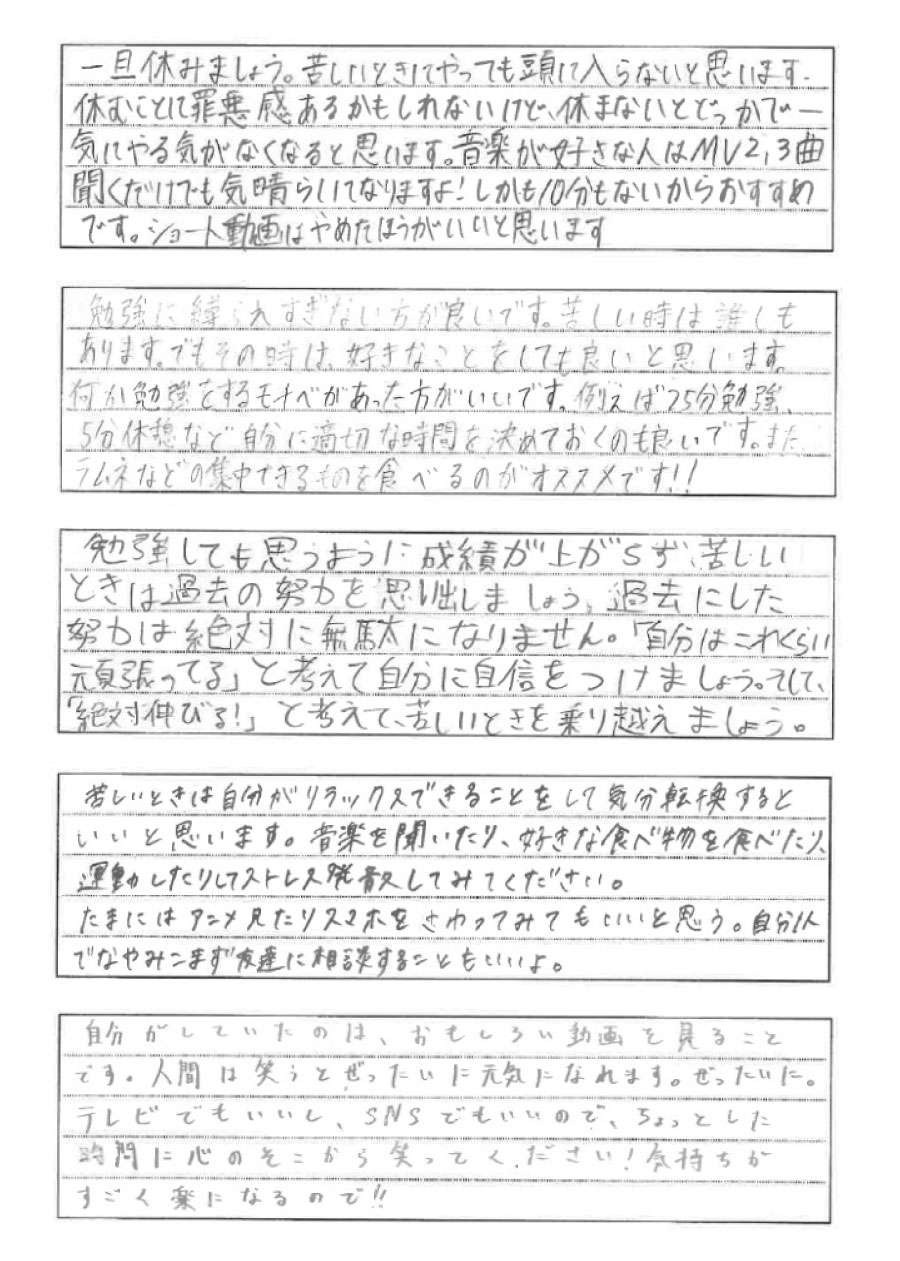 一旦休みましょう。苦しいときにやっても頭に入らないと思います.
休むことに罪悪感あるかもしれないけど、休まないとどっかで一
気にやる気がなくなると思います。音楽が好きな人はMV2,3曲
聞くだけでも気晴らしになりますよ!しかも10分もないからおすすめ
です。ショート動画はやめたほうがいいと思います
勉強に縛られすぎない方が良いです。苦しい時は誰しも
あります。でもその時は、好きなことをしても良いと思います。
何か勉強をするモチベがあった方がいいです。例えば25分勉強、
5分休憩など自分に適切な時間を決めておくのも良いです。また
ラムネなどの集中できるものを食べるのがオススメです!!
勉強しても思うように成績が上がらず、苦しい
ときは過去の努力を思い出しましょう、過去にした
努力は絶対に無駄になりません。「自分はこれくらい
頑張ってる」と考えて自分に自信をつけましょう。そして、
「絶対伸びる!」と考えて、苦しいときを乗り越えましょう。
苦しいときは自分がリラックスできることをして気分転換すると
いいと思います。音楽を聞いたり、好きな食べ物を食べたり、
運動したりしてストレス発散してみてください。
たまにはアニメ見たりスマホをさわってみてもいいと思う。自分1人
でなやみこまず友達に相談することもいいよ。
自分がしていたのは、おもしろい動画を見ること
です。人間は笑うとぜったいに元気になれます。ぜったいに。
テレビでもいいし、SNSでもいいので、ちょっとした
時間に心のそこから笑ってください!気持ちが
すごく楽になるので!!